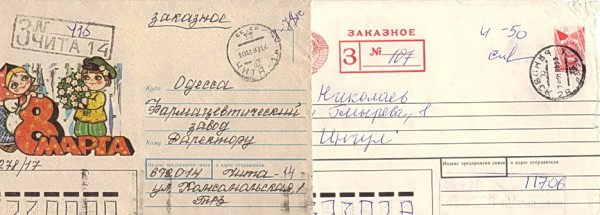 заказное
З №
116
ЧИТА 14
Куда
Одесса
Фармацевтический
завод
Кому
Директору
8
МАРТА
278/77
Индекс предприятия связи и адрес отправителя
672014 Чита-14
ул Комсомольская 1
ЗАКАЗНОЕ
З № 107
Ч-50
Николаев
"Ингул"
Индекс предприятия связи и адрес отправителя
11706